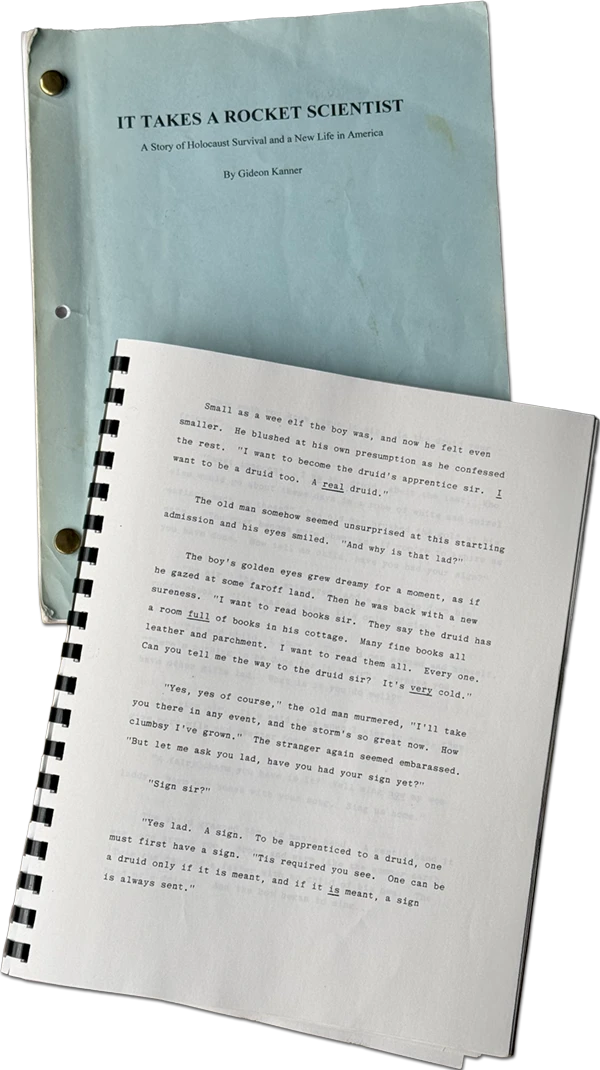 IT TAKES A ROCKET SCIENTIST
A Story of Holocaust Survival and a New Life in America
By Gideon Kanner
Small as a wee elf the boy was, and now he felt even
smaller. He blushed at his own presumption as he confessed
the rest. "I want to become the druid's apprentice sir. I
want to be a druid too. A real druid."
The old man somehow seemed unsurprised at this startling
admission and his eyes smiled. "And why is that lad?"
The boy's golden eyes grew dreamy for a moment, as if
he gazed at some faroff land. Then he was back with a new
sureness. "I want to read books sir. They say the druid has
a room full of books in his cottage. Many fine books all
leather and parchment. I want to read them all. Every one.
Can you tell me the way to the druid sir? It's very cold."
"Yes, yes of course," the old man murmered, "I'll take
you there in any event, and the storm's so great now. How
clumbsy I've grown." The stranger again seemed embarassed.
"But let me ask you lad, have you had your sign yet?"
"Sign sir?"
"Yes lad. A sign. To be apprenticed to a druid, one
must first have a sign. "Tis required you see. One can be
a druid only if it is meant, and if it is meant, a sign
is always sent."